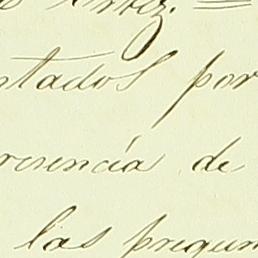 ntados por
resencia de
las pregun